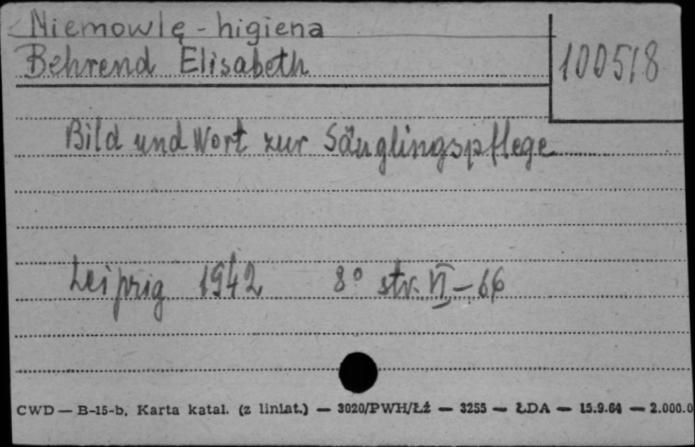 Niemowlę - higiena
Behrend Elisabeth
100518
Bild und Wort zur Säuglingspflege
Leipzig 1942 8° str. VI-66
CWD — B-15-b, Karta katal. (z liniat.) — 3020/PWH/Łź — 3255 — ŁDA — 15.9.64 — 2.000.0